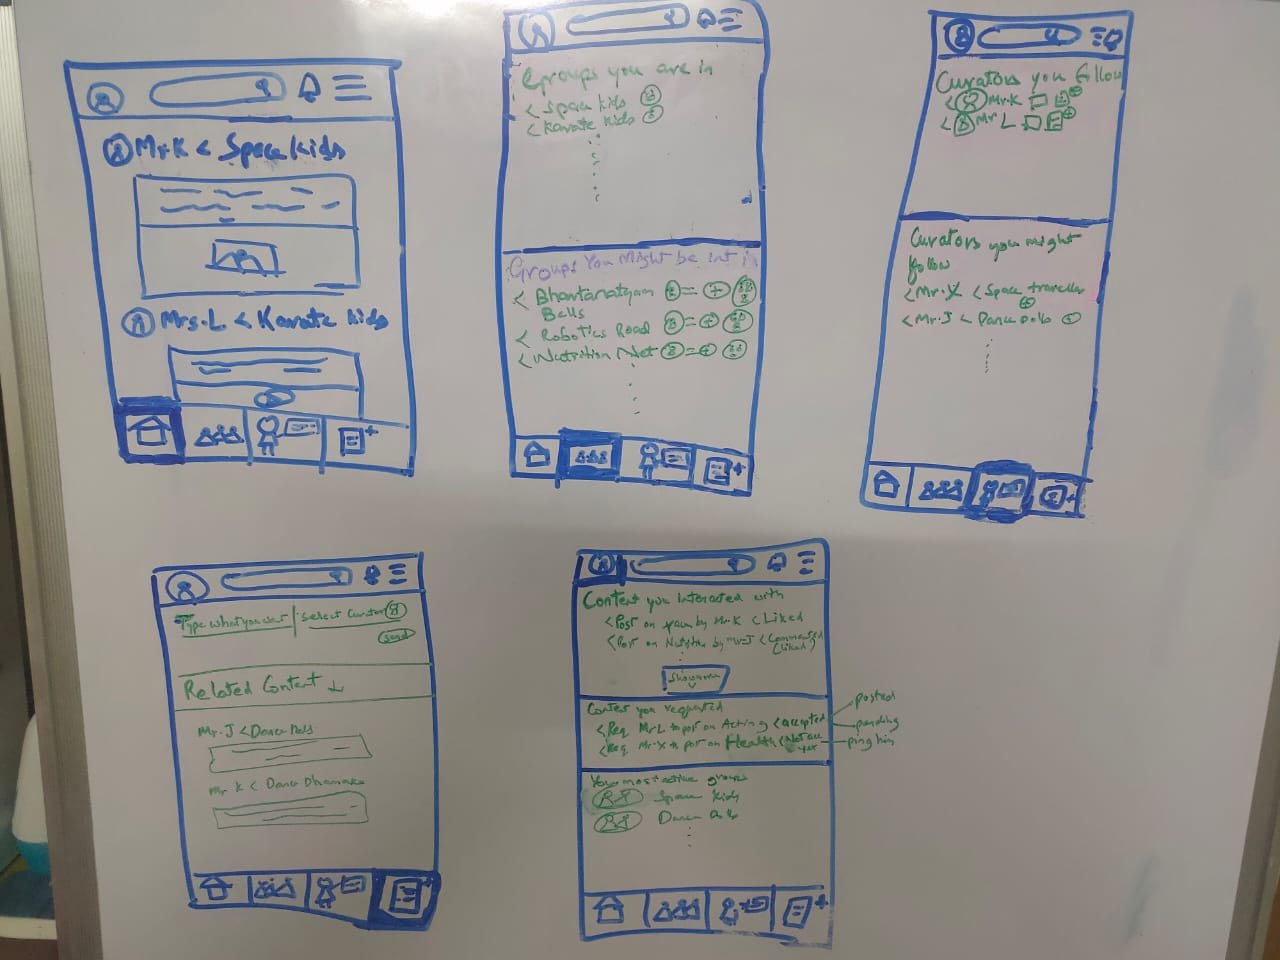 Mr.K < Space kids
Mrs.L < Karate kids
Groups you are in
< Space kids
< Karate kids
Groups You might be int in
< Bharatanatyam
Bells
< Robotics Road
< Nutrition Net
Curators you follow
< Mr.K
< Mr L
Curators you might
follow
< Mr.X < Space traveller
< Mr.J < Dance Dolls
Type what you want | Select Curator
Send
Related Content ↓
Mr.J < Dance Dolls
Mr K < Dance Dhamaka
Content you interacted with
< Post on space by Mr.K < Liked
< Post on Nutrition by Mr J < Commented
Liked
Show more
Content you requested
< Req Mr L to post on Acting < accepted
< Req Mr X to post on Health < Not acc
yet
posted
pending
ping him
Your most active groups
Space kids
Dance Dolls